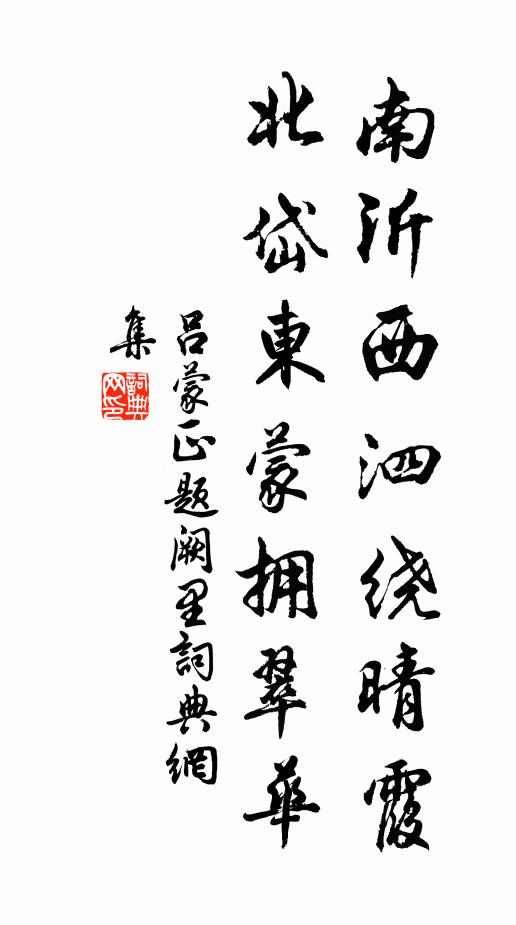 南沂西泗绕晴霞
北岱東蒙拥翠華
吕蒙正题阙里詞典網
集
詞典网印